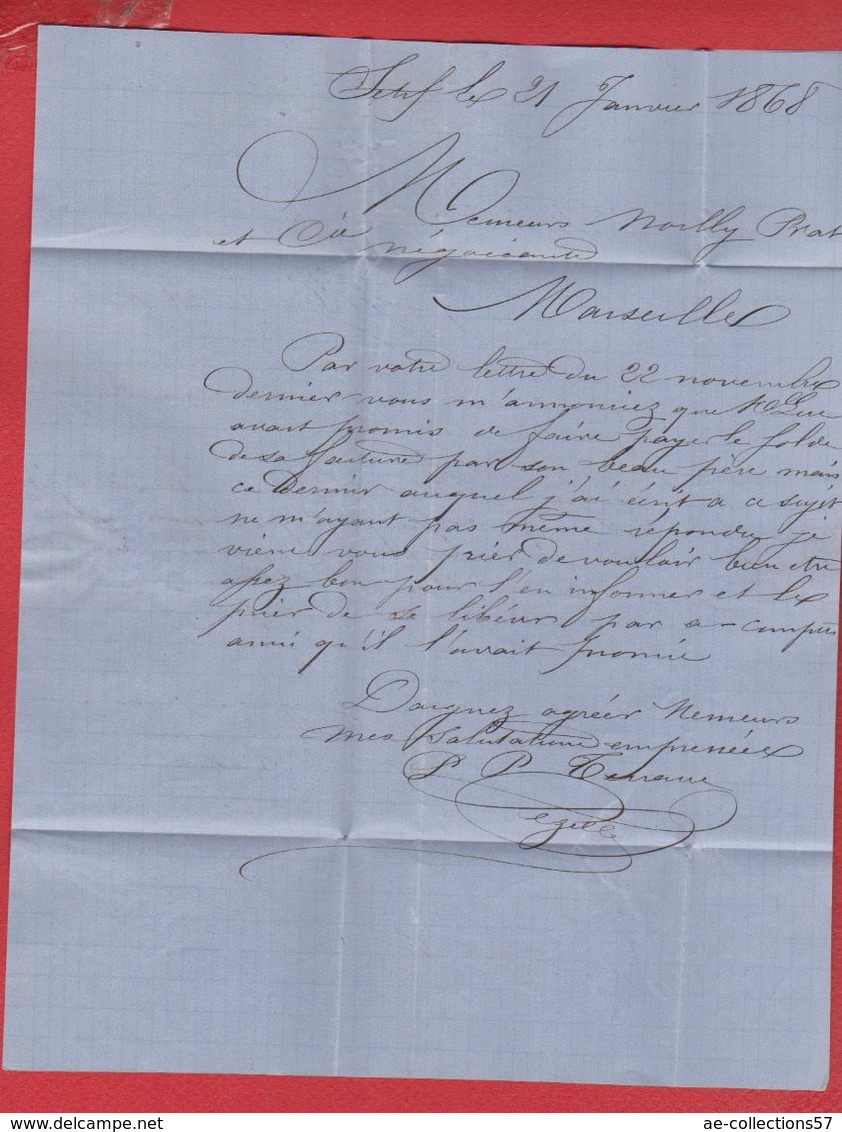 Setif le 21 Janvier 1868
Messieurs Noilly Prat
et Cie négociants
Marseille
Par votre lettre du 22 novembre
dernier vous m'annonciez que Mr
avait promis de faire payer le solde
de sa facture par son beau père mais
ce dernier auquel j'ai écrit a ce sujet
ne m'ayant pas même répondu je
viens vous prier de vouloir bien etre
assez bon pour l'en informer et le
prier de se libérer par a-compte
ainsi qu'il l'avait promis
Daignez agréer Messieurs
mes salutations empressées
P P
ae-collections57